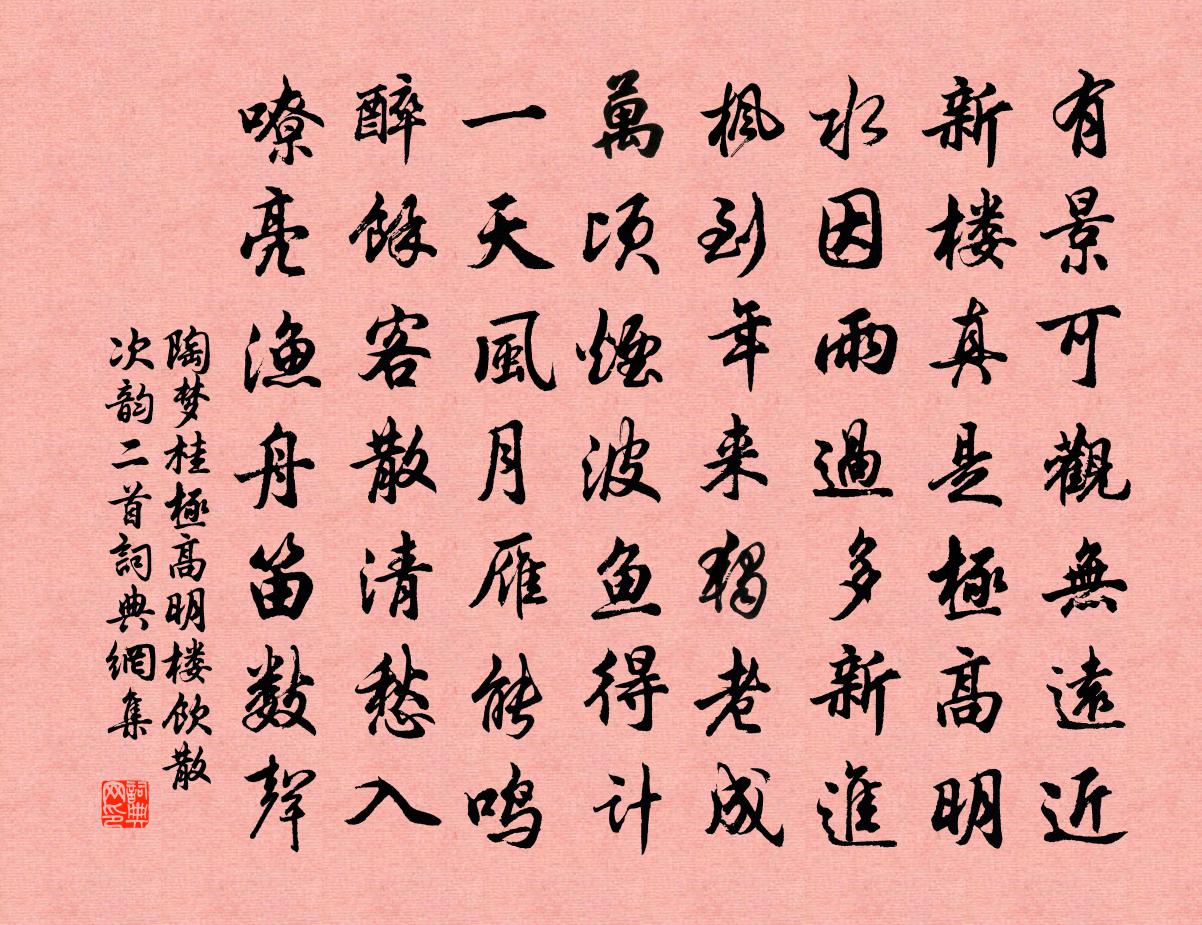 有景可觀無遠近
新楼真是極高明
水因雨過多新進
枫到年来獨老成
萬頃煙波鱼得计
一天風月雁能鸣
醉餘客散清愁入
嘹亮漁舟笛数聲
陶梦桂極高明楼饮散
次韵二首詞典網集
詞典网印